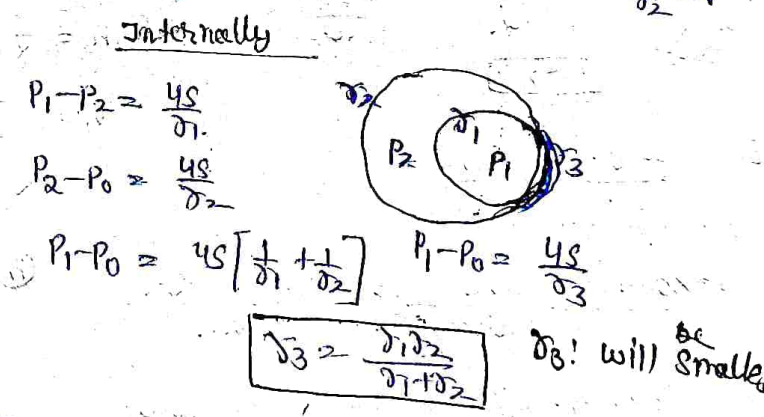 r₂
Internally
P₁-P₂ = 4S/r₁.
r₂
r₁
P₂
P₁
r₃
P₂-P₀ = 4S/r₂
P₁-P₀ = 4S[1/r₁ + 1/r₂] P₁-P₀ = 4S/r₃
r₃ = r₁r₂/r₁+r₂
r₃! will be smaller